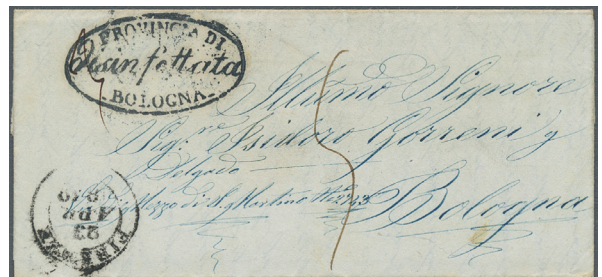 PROVINCIA DI
Disinfettata
BOLOGNA.
Illumo Signore
Sigre Isidoro Zorreni y
Delgado
Mezzo di S. Martino
Bologna
FIRENZE
23
APR